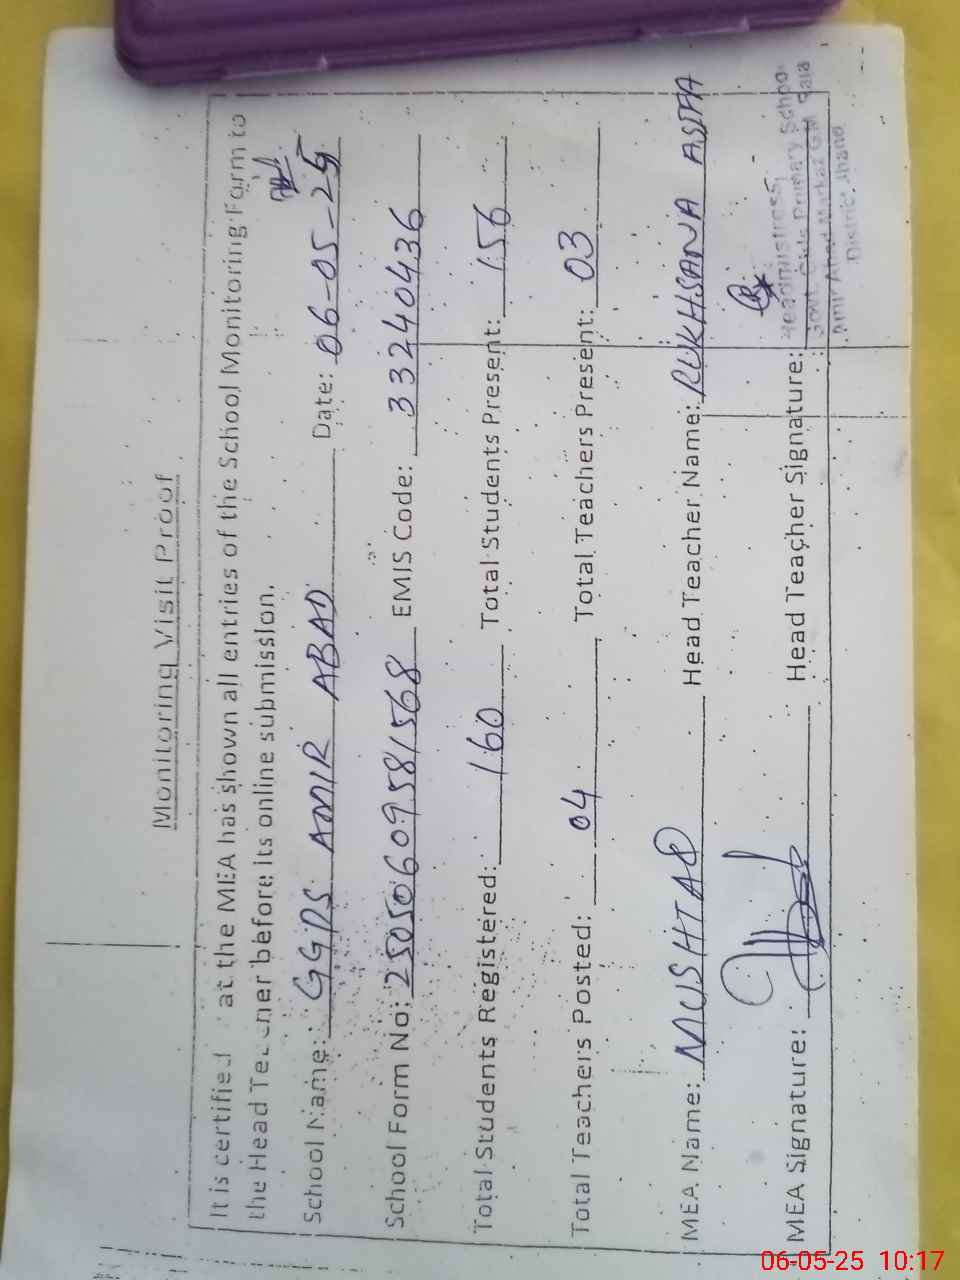 Monitoring Visit Proof
It is certified at the MEA has shown all entries of the School Monitoring Form to
the Head Teacher before its online submission.
School Name: GGPS AMIR ABAD Date: 06-05-25
School Form No: 25050609581568 EMIS Code: 33240436
Total Students Registered: 160 Total Students Present: 156
Total Teachers Posted: 04 Total Teachers Present: 03
MEA Name: MUSHTAQ Head Teacher Name: RUKHSANA
MEA Signature: Head Teacher Signature:
Headmistress
Govt. Girls Primary School
Amir Abad Markaz G.M. Raja
District Jhang
06-05-25 10:17